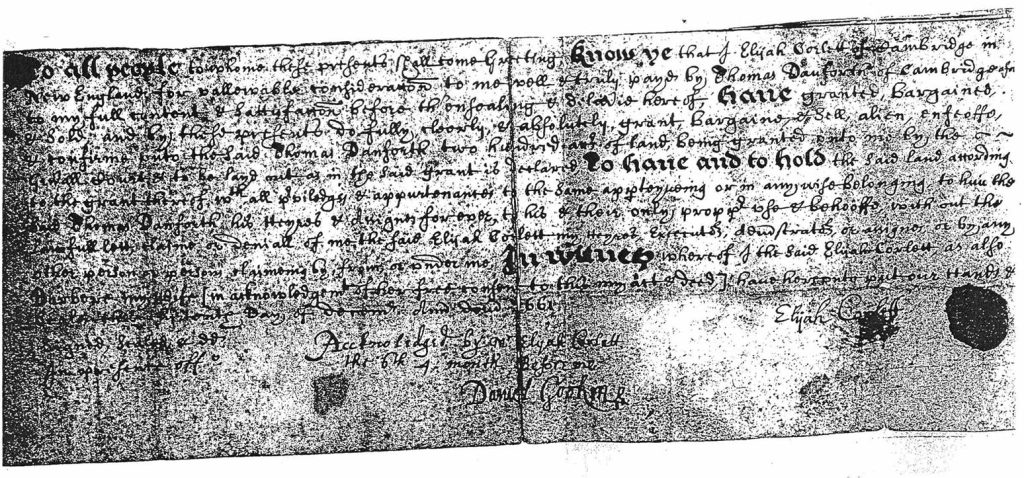 To all people to whome these presents shall come Greeting, Know ye that I Elijah Corlett of Cambridge in
New England, for vallewable consideration to me well & truly payd by Thomas Danforth of Cambridge
to my full content & sattisfaction before the ensealing & deliverie hereof, Haue granted Bargained,
& Sold, and by these presents do fully, cleerly, & absolutely, grant, Bargaine, & Sell, alien, enfeoffe,
& confirme unto the said Thomas Danforth two hundred of land, being granted unto me by the
to be laid out as in the said grant is declared To haue and to hold the said land according
to the grant thereof, wth all priviledges & appurtenances to the same apptayneing or in any wise belonging, to him the
said Thomas Danforth his Heyres & Assignes for ever, to his & their only propp vse & behooffe, with out the
lawfull lett, claime, or deniall of me the said Elijah Corlett my Heyres or assignes, or by any
other person or persons claimeing by, from, or vnder me In witnes whereof I the said Elijah Corlett as also
Barbara my wife [in acknowledgent of her free consent to this my act & deed] have hereunto put our Hands &
Day of decem 1661
Elijah Corlett
signed, sealed & dd
In presence off
Acknowledged by mr Elijah Corlett
the 6th 4. month Before me
Daniel Gookin